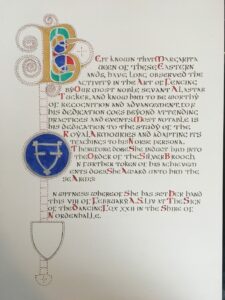 Be it known that Margarita
Queen of these Eastern
Lands, have long observed the
activity in the Art of Fencing
by Our most noble servant Alastar
Tucker, and know him to be worthy
of recognition and advancement, for
his dedication goes beyond attending
practices and events. Most notable is
his dedication to the study of the
Royal Armouries and adapting its
teachings to his Norse persona.
Therefore does She induct him into
the Order of the Silver Brooch.
In farther token of his achievem
ents does She award unto him the
se Arms:
In witness whereof She has set Her hand
this VIII of February A.S. LIV at The Sign
of the Dancing Fox XXII in the Shire of
Nordenhalle.